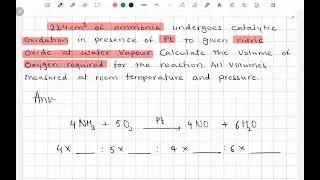 224cm³ of ammonia undergoes catalytic
oxidation in presence of Pt to given nitric
oxide at water vapour Calculate the volume of
oxygen required for the reaction. All volumes
measured at room temperature and pressure.
Ans:-
4NH₃ + 5O₂ →Pt 4NO + 6H₂O
4 × ___ : 5 × ___ : 4 × ___ : 6 × ___